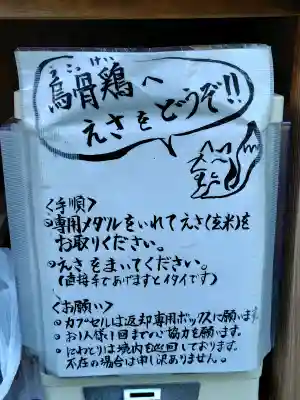 うこっけい
烏骨鶏へ
えさをどうぞ!!
〈手順〉
◎専用メダルをいれてえさ(玄米)を
お取りください。
◎えさをまいてください。
(直接手であげますとイタイです)
〈お願い〉
◎カプセルは返却専用ボックスに願います
◎お1人様1回までのご協力を願います。
◎にわとりは境内を巡回しております。
不在の場合は申し訳ありません。